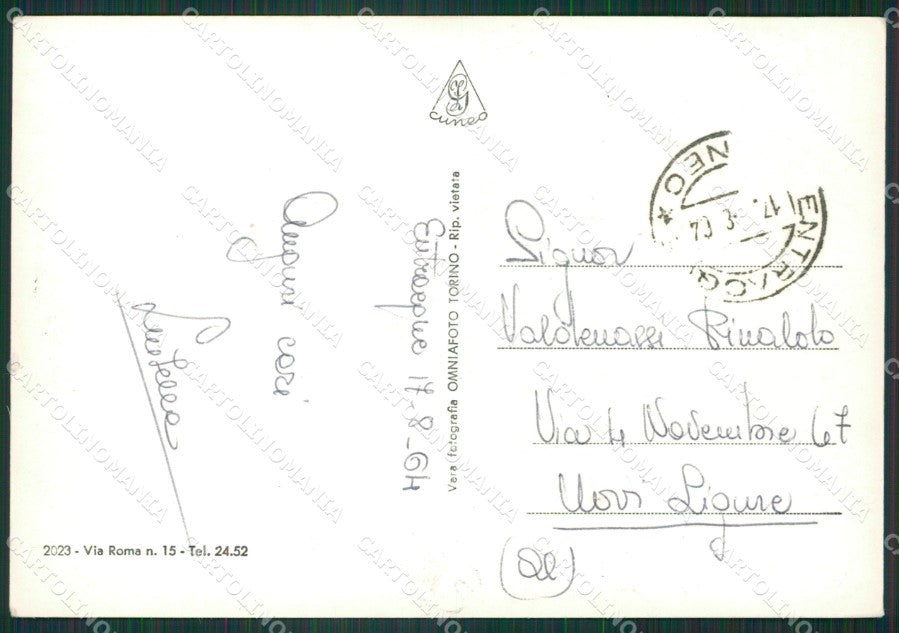 CUNEO
Auguri cari
Entracque 17-8-64
Vera fotografia OMNIAFOTO TORINO - Rip. vietata
2023 - Via Roma n. 15 - Tel. 24.52
ENTRACQ
NEO *
17.
Signor
Rinaldo
Via 4 Novembre 67
Novi Ligure
(Al)
CARTOLINOMANIA